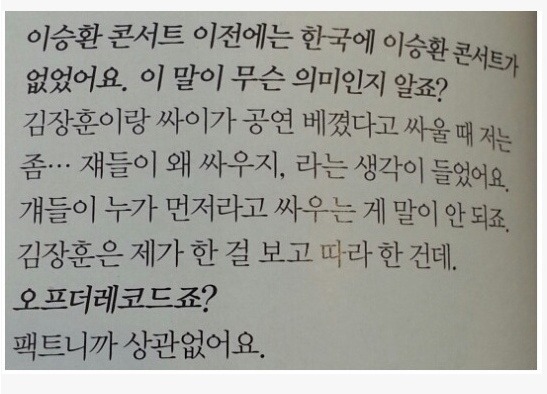 이승환 콘서트 이전에는 한국에 이승환 콘서트가
없었어요. 이 말이 무슨 의미인지 알죠?
김장훈이랑 싸이가 공연 베꼈다고 싸울 때 저는
좀… 쟤들이 왜 싸우지, 라는 생각이 들었어요.
걔들이 누가 먼저라고 싸우는 게 말이 안 되죠.
김장훈은 제가 한 걸 보고 따라 한 건데.
오프더레코드죠?
팩트니까 상관없어요.